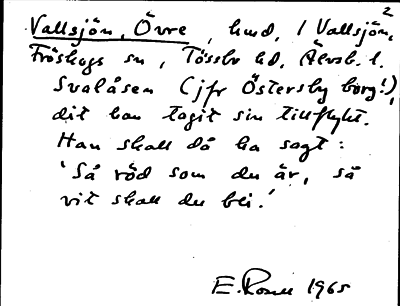 2
Vallsjön, Övre, hmd, i Vallsjön,
Fröskogs sn, Tössbo hd, Älvsb. l.
Svalåsen (jfr Östersby borg!),
dit han tagit sin tillflykt.
Han skall då ha sagt:
'Så röd som du är, så
vit skall du bli.'
E. 1965